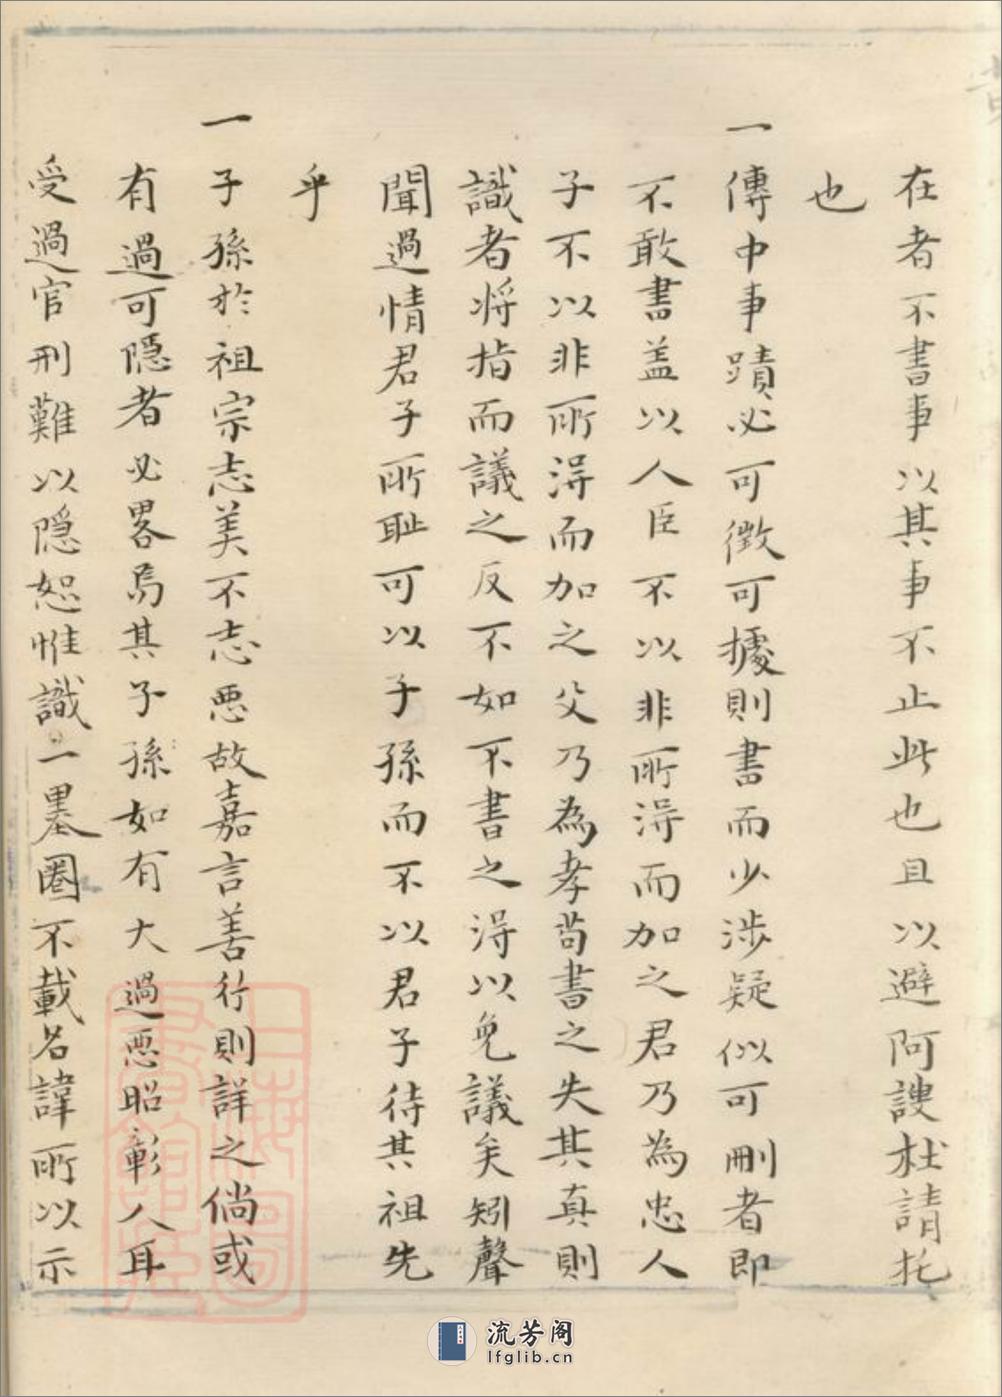 在者不書事以其事不止此也且以避阿諛杜請托
也
一傳中事蹟必可徵可據則書而少涉疑似可刪者即
不敢書盖以人臣不以非所淂而加之君乃為忠人
子不以非所淂而加之父乃為孝苟書之失其真則
識者将指而議之反不如不書之淂以免議矣矧聲
聞過情君子所耻可以子孫而不以君子待其祖先
乎
一子孫於祖宗志美不志惡故嘉言善行則詳之倘或
有過可隱者必畧焉其子孫如有大過惡昭彰人耳
受過官刑難以隱恕惟識一墨圈不載名諱所以示
上海圖書館藏
流芳阁
lfglib.cn